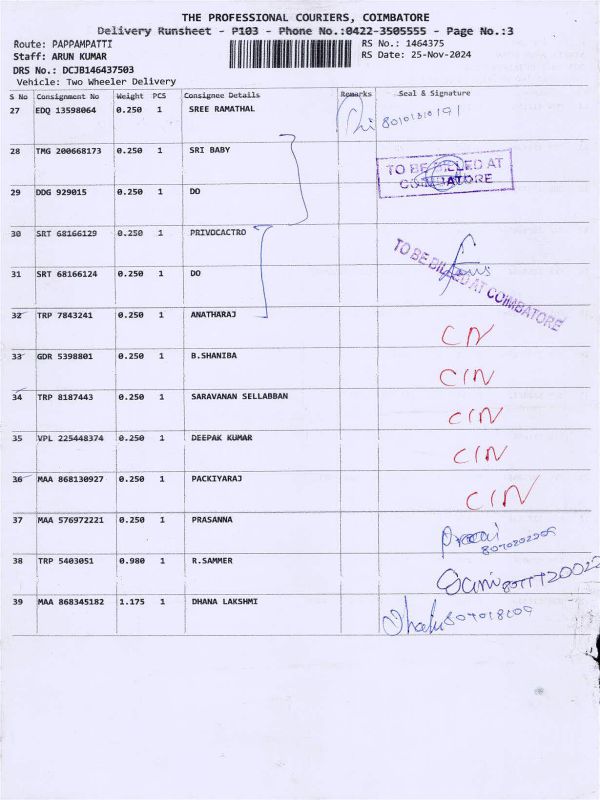 THE PROFESSIONAL COURIERS, COIMBATORE
Delivery Runsheet - P103 - Phone No.:0422-3505555 - Page No.:3
Route: PAPPAMPATTI
RS No.: 1464375
Staff: ARUN KUMAR
RS Date: 25-Nov-2024
DRS No.: DCJB146437503
Vehicle: Two Wheeler Delivery
S No Consignment No Weight PCS Consignee Details Remarks Seal & Signature
27 EDQ 13598064 0.250 1 SREE RAMATHAL
28 TMG 200668173 0.250 1 SRI BABY
TO BE BILLED AT
COIMBATORE
29 DDG 929015 0.250 1 DO
30 SRT 68166129 0.250 1 PRIVOCACTRO
TO BE BILLED AT COIMBATORE
31 SRT 68166124 0.250 1 DO
32 TRP 7843241 0.250 1 ANATHARAJ CN
33 GDR 5398801 0.250 1 B.SHANIBA CIN
34 TRP 8187443 0.250 1 SARAVANAN SELLABBAN CIN
35 VPL 225448374 0.250 1 DEEPAK KUMAR CIN
36 MAA 868130927 0.250 1 PACKIYARAJ CIN
37 MAA 576972221 0.250 1 PRASANNA
38 TRP 5403051 0.980 1 R.SAMMER
39 MAA 868345182 1.175 1 DHANA LAKSHMI